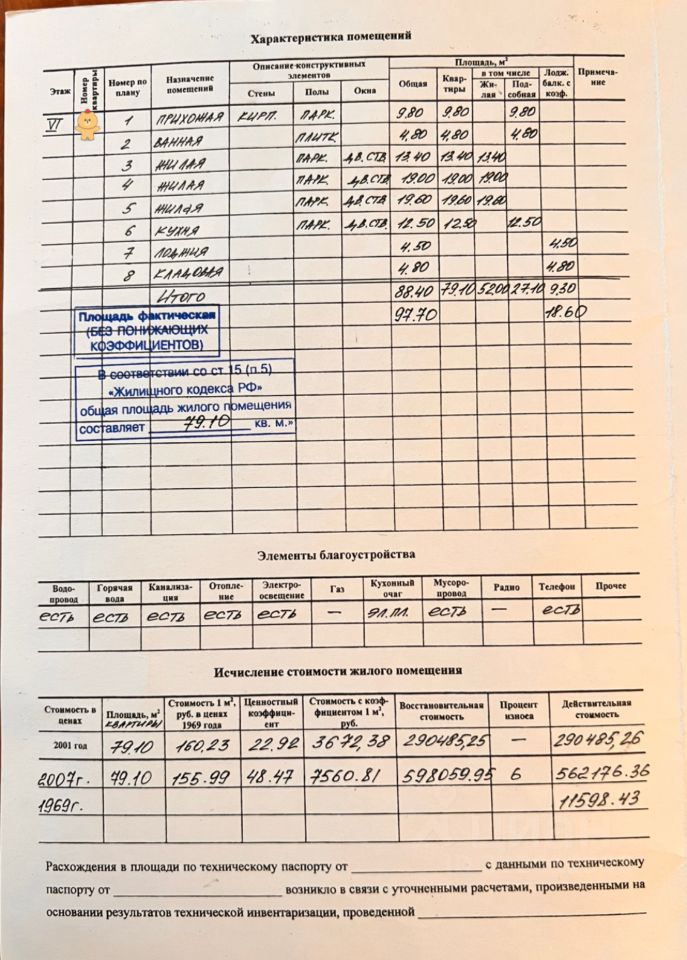 Характеристика помещений
Этаж | Номер квартиры | Номер по плану | Назначение помещений | Описание конструктивных элементов | Площадь, м² | Примеча-ние
Стены | Полы | Окна | Общая | Квар-тиры | в том числе | Лодж. балк. с коэф.
Жи-лая | Под-собная
VI | 1 | ПРИХОЖАЯ | КИРП. | ПАРК. | 9.80 | 9.80 | 9.80
2 | ВАННАЯ | ПЛИТК. | 4,80 | 4,80 | 4.80
3 | ЖИЛАЯ | ПАРК. | ДВ.СТВ. | 13.40 | 13.40 | 13.40
4 | ЖИЛАЯ | ПАРК. | ДВ.СТВ. | 19.00 | 19.00 | 19.00
5 | ЖИЛАЯ | ПАРК. | ДВ.СТВ. | 19.60 | 19.60 | 19.60
6 | КУХНЯ | ПАРК. | ДВ.СТВ. | 12.50 | 12.50 | 12.50
7 | ЛОДЖИЯ | 4.50 | 4.50
8 | КЛАДОВАЯ | 4.80 | 4.80
ИТОГО | 88.40 | 79.10 | 52.00 | 27.10 | 9.30
97.70 | 18.60
Площадь фактическая
(БЕЗ ПОНИЖАЮЩИХ
КОЭФФИЦИЕНТОВ)
В соответствии со ст 15 (п.5)
«Жилищного кодекса РФ»
общая площадь жилого помещения
составляет 79.10 кв. м.»
Элементы благоустройства
Водо-провод | Горячая вода | Канализа-ция | Отопле-ние | Электро-освещение | Газ | Кухонный очаг | Мусоро-провод | Радио | Телефон | Прочее
есть | есть | есть | есть | есть | — | эл.пл. | есть | — | есть
Исчисление стоимости жилого помещения
Стоимость в ценах | Площадь, м² КВАРТИРЫ | Стоимость 1 м², руб. в ценах 1969 года | Ценностный коэффици-ент | Стоимость с коэф-фициентом 1 м², руб. | Восстановительная стоимость | Процент износа | Действительная стоимость
2001 год | 79.10 | 160,23 | 22,92 | 3672,38 | 290485,25 | — | 290485,26
2007г. | 79.10 | 155.99 | 48.47 | 7560.81 | 598059.95 | 6 | 562176.36
1969г. | 11598.43
Расхождения в площади по техническому паспорту от ______ с данными по техническому
паспорту от ______ возникло в связи с уточненными расчетами, произведенными на
основании результатов технической инвентаризации, проведенной ______